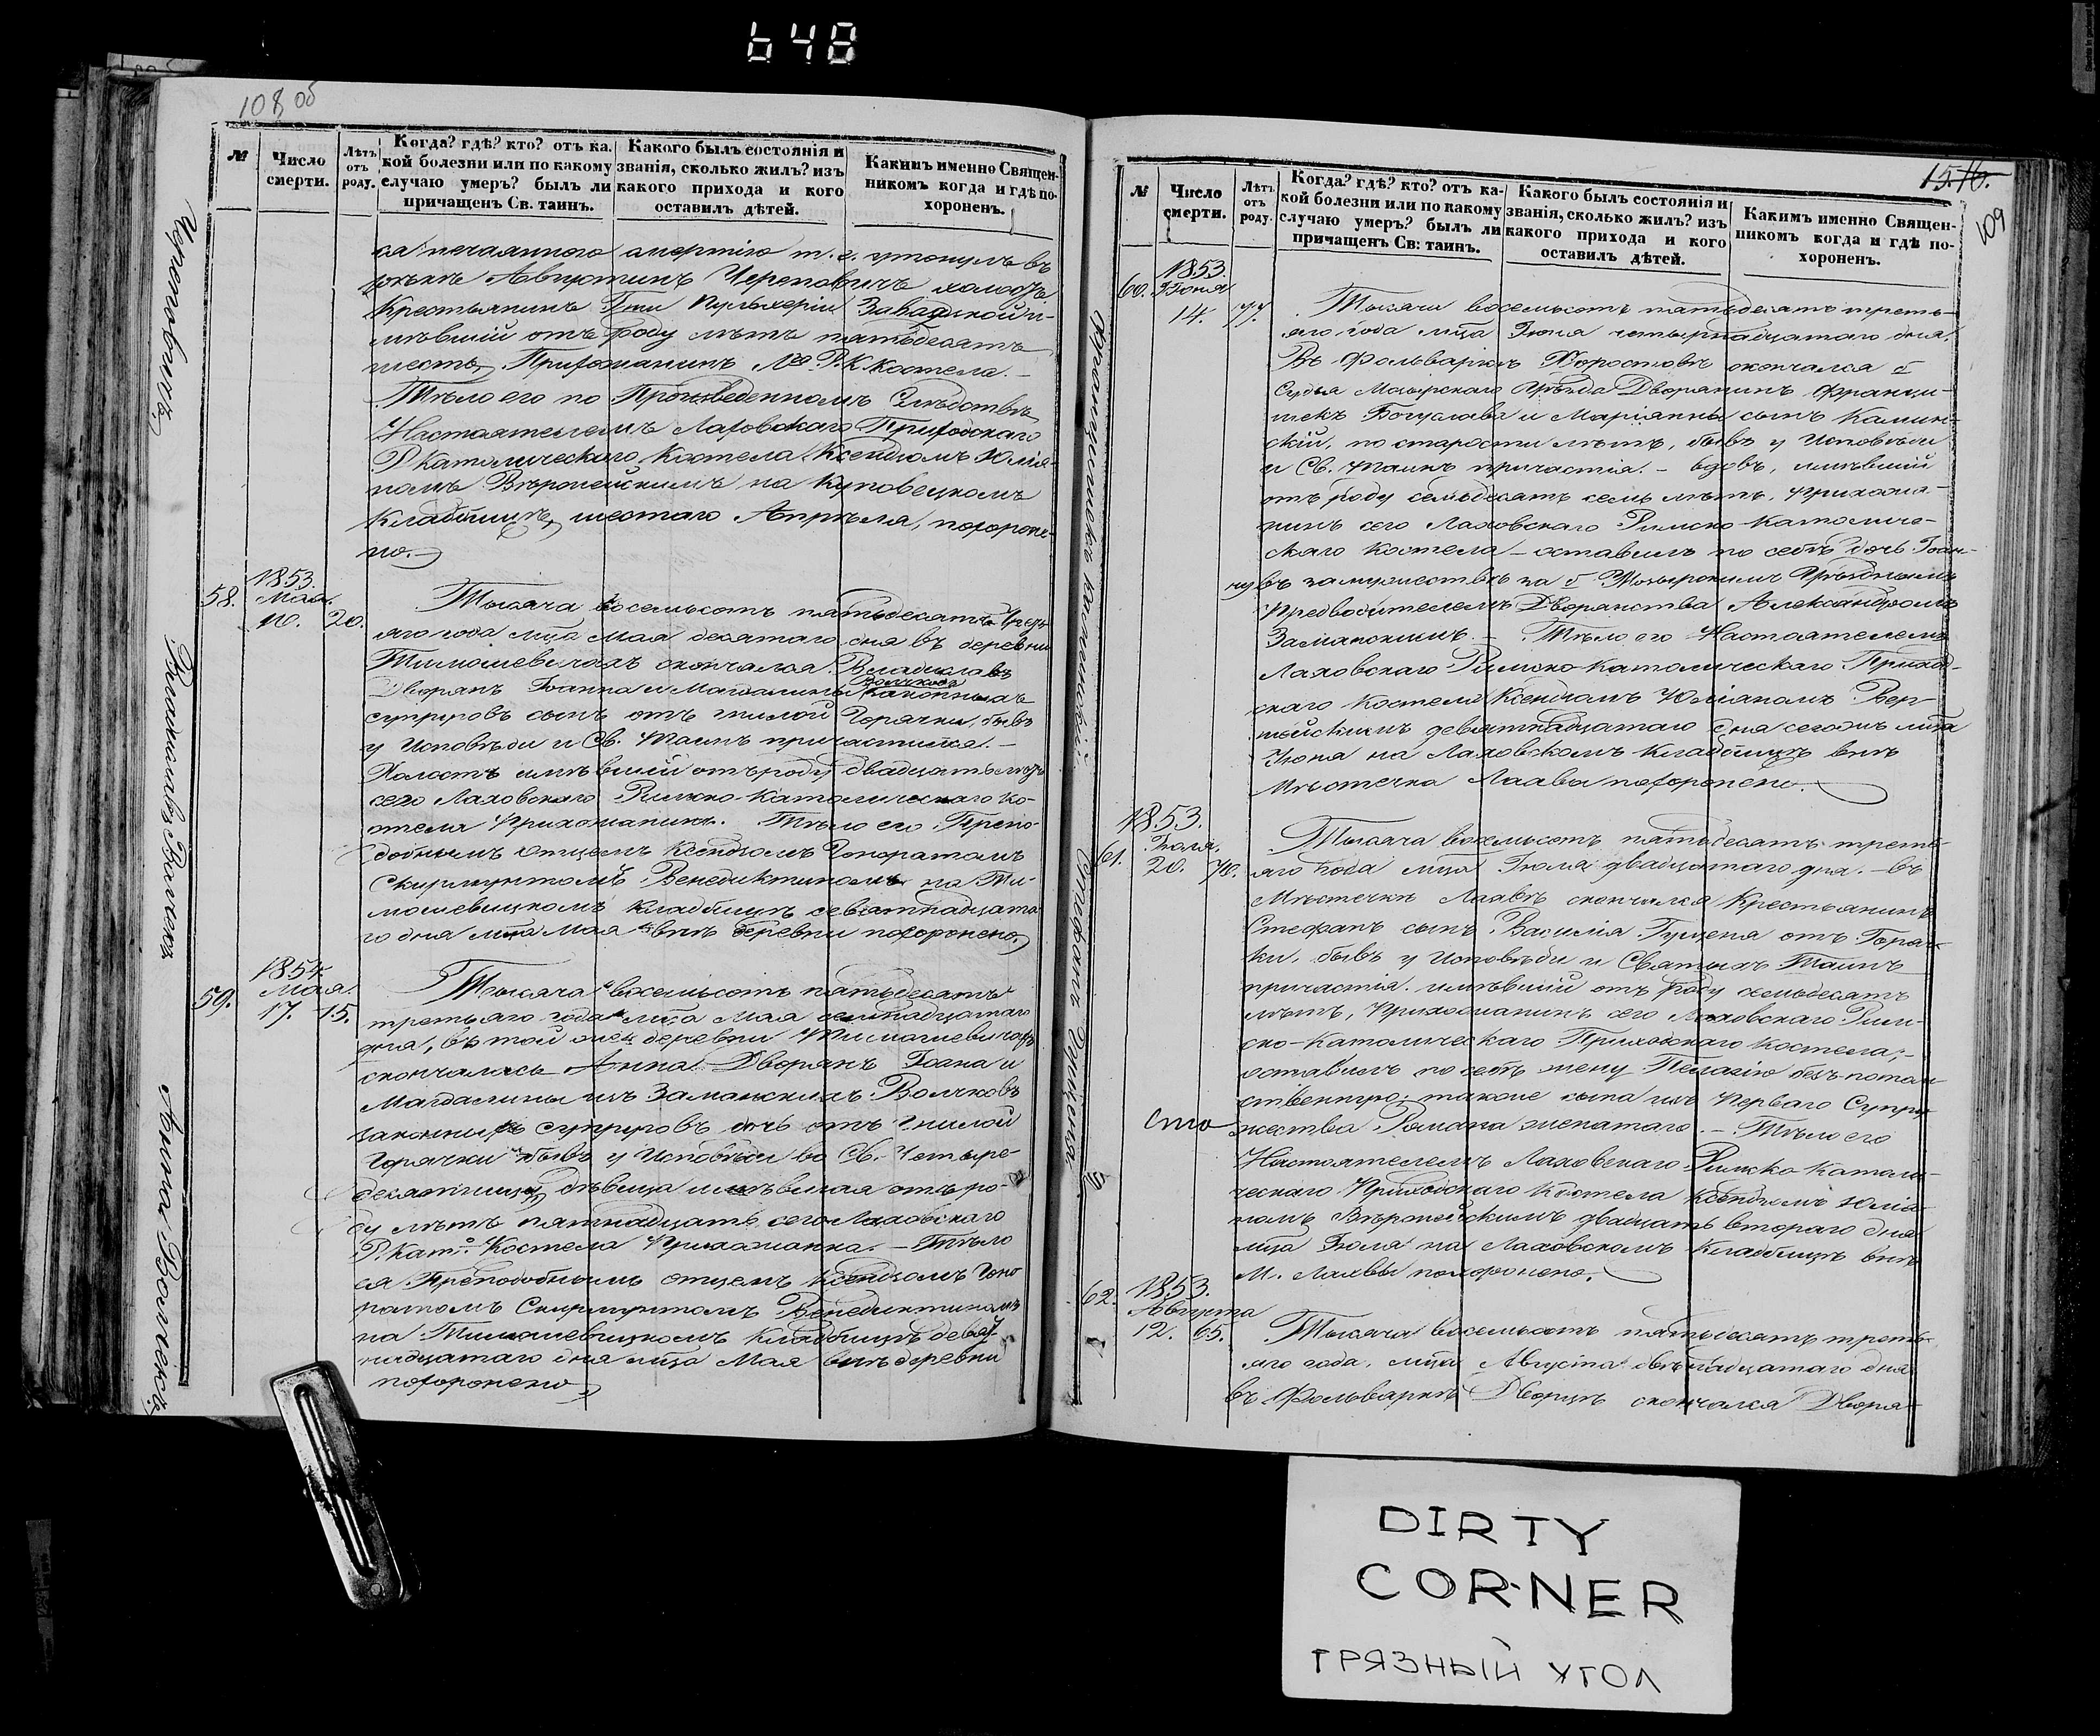 648
108 об
№
Число смерти.
Лѣтъ отъ роду.
Когда? гдѣ? кто? отъ ка-
кой болезни или по какому
случаю умеръ? былъ ли
причащенъ Св. таинъ.
Какого былъ состоянія и
званія, сколько жилъ? изъ
какого прихода и кого
оставилъ дѣтей.
Какимъ именно Священ-
никомъ когда и гдѣ по-
хороненъ.
Черповичъ
Владиславъ Волчекъ
Анна Волчковъ
смертію т. е. утонулъ въ
Августинъ Череповичъ холостъ
Крестьянинъ Гжи Пульхеріи Завадской и-
мѣвшій отъ роду лѣтъ пятьдесятъ
шесть, Прихожанинъ Р. К. Костела. –
Тѣло его по Произведенномъ Слѣдствіи
Настоятелемъ Лаховскаго Приходскаго
Р. Католическаго Костела Ксендзомъ Юлія-
номъ на Куповецкомъ
Кладбищѣ, шестаго Апрѣля, похороне-
но.
58.
1853.
Мая.
10. 20.
Тысяча восемьсотъ пятьдесятъ треть-
яго года мца Мая десятаго дня въ деревни
Тимошевичахъ скончался Владиславъ
Дворянъ Іоанна и Магдалины Волчковъ законныхъ
супруговъ сынъ отъ гнилой Горячки, бывъ
у Исповѣди и Св. Таинъ причастился. –
Холостъ имѣвшій отъ роду двадцать лѣтъ
сего Лаховскаго Римско-Католическаго Ко-
стела Прихожанинъ. Тѣло его Препо-
добнымъ отцемъ Ксендзомъ Гоноратомъ
Скирмунтомъ Бенедиктиномъ на Ти-
мошевицкомъ кладбищѣ девятнадцата-
го дня мца Мая внѣ деревни похоронено.
59.
1854.
Мая.
17. 15.
Тысяча восемьсотъ пятьдесятъ
третьяго года мца Мая семнадцатаго
дня, въ той же деревни Тимошевичахъ
скончалась Анна Дворянъ Іоана и
Магдалины изъ Заманскихъ Волчковъ
законныхъ супруговъ дочь отъ Гнилой
Горячки бывъ у Исповѣди во Св. Четыре-
десятницу, дѣвица имѣвшая отъ ро-
ду лѣтъ пятнадцать сего Лаховскаго
Р. Кат. Костела Прихожанка. – Тѣло
ея Преподобнымъ отцемъ Ксендзомъ Гоно
ратомъ Скирмунтомъ Бенедиктиномъ
на Тимошевицкомъ кладбищѣ девят-
надцатаго дня мца Мая внѣ деревни
похоронено
15.16.
109
№
Число смерти.
Лѣтъ отъ роду.
Когда? гдѣ? кто? отъ ка-
кой болезни или по какому
случаю умеръ? былъ ли
причащенъ Св: таинъ.
Какого былъ состоянія и
званія, сколько жилъ? изъ
какого прихода и кого
оставилъ дѣтей.
Какимъ именно Священ-
никомъ когда и гдѣ по-
хороненъ.
Францишекъ Каминскій.
Стефанъ Гуцень
60.
1853.
Іюня
14. 77.
Тысяча восемьсотъ пятьдесятъ треть-
яго года мца Іюня четырнадцатаго дня,
Въ Фольваркѣ Хоростовѣ скончался б.
Судья Мозырскаго Уѣзда Дворянинъ Франци-
шекъ Богуслава и Маріянны сынъ Камин-
скій, по старости лѣтъ, бывъ у Исповѣди
и Св. Таинъ причастія. – вдовъ, имѣвшій
отъ роду семьдесятъ семь лѣтъ, прихожа-
нинъ сего Лаховскаго Римско-Католиче-
скаго Костела – оставилъ по себѣ дочь Іоан-
ну въ замужествѣ за б. Мозырскимъ Уѣзднымъ
Предводителемъ Дворянства Александромъ
Заманскимъ. – Тѣло его Настоятелемъ
Лаховскаго Римско-Католическаго Приход-
скаго Костела Ксендзомъ Юліаномъ Вер-
пейскимъ девятнадцатаго дня сегожъ мца
Іюня на Лаховскомъ кладбищѣ внѣ
Мѣстечка Лахвы похоронено.
61.
1853.
Іюля.
20. 70.
Тысяча восемьсотъ пятьдесятъ треть-
яго года мца Іюля двадцатаго дня. – въ
Мѣстечкѣ Лахвѣ скончался Крестьянинъ
Стефанъ сынъ Василія Гуценя отъ Горяч-
ки, бывъ у Исповѣди и Святыхъ Таинъ
причастія. имѣвшій отъ роду семьдесятъ
лѣтъ, Прихожанинъ сего Лаховскаго Рим-
ско-Католическаго Приходскаго Костела, –
оставилъ по себѣ жену Пелагію безъ потом-
ственную; также сына изъ перваго Супру-
жества Романа женатаго. – Тѣло его
Настоятелемъ Лаховскаго Римско-Катол-
ческаго Приходскаго Костела Ксендзомъ Юлiа-
номъ двадцать втораго дня
мца Іюля на Лаховскомъ Кладбищѣ внѣ
М. Лахвы похоронено.
62.
1853.
Августа
12. 65.
Тысяча восемьсотъ пятьдесятъ треть-
яго года, мца Августа двѣнадцатаго дня
въ Фольваркѣ Дворцѣ скончался Дворя-
DIRTY
CORNER
ГРЯЗНЫЙ УГОЛ